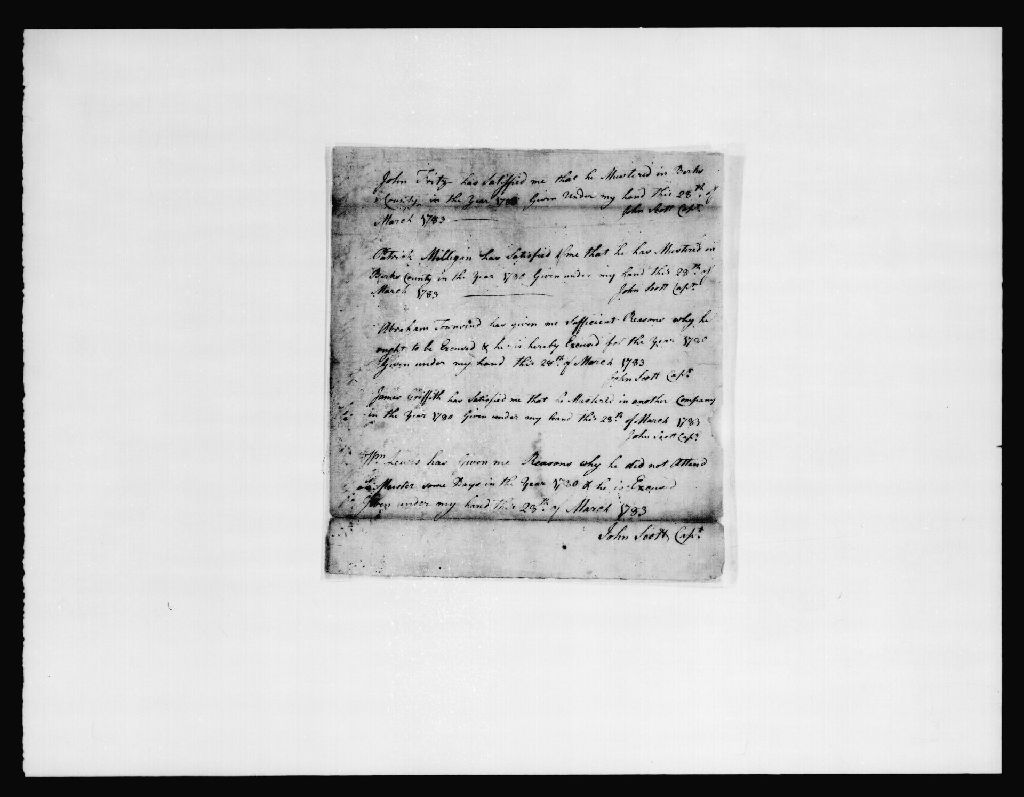 John Fritz has Satisfied me that he Mustered in Berks
County in the Year 1780 Given Under my hand this 28th of
March 1783 John Scott Capt
Patrick Milligan has Satisfied me that he has Mustered in
Berks County in the Year 1780 Given under my hand this 28th of
March 1783 John Scott Capt
Abraham has given me Sufficient Reasons why he
ought to be Excused & he is hereby Excused for the Year 1780
Given under my hand this 28th of March 1783
John Scott Capt
James Griffith has Satisfied me that he Mustered in another Company
in the Year 1780 Given under my hand this 28th of March 1783
John Scott Capt
Wm Lewis has Given me Reasons why he did not Attend
Muster some Days in the Year 1780 & he is Excused
Given under my hand this 28th of March 1783
John Scott Capt